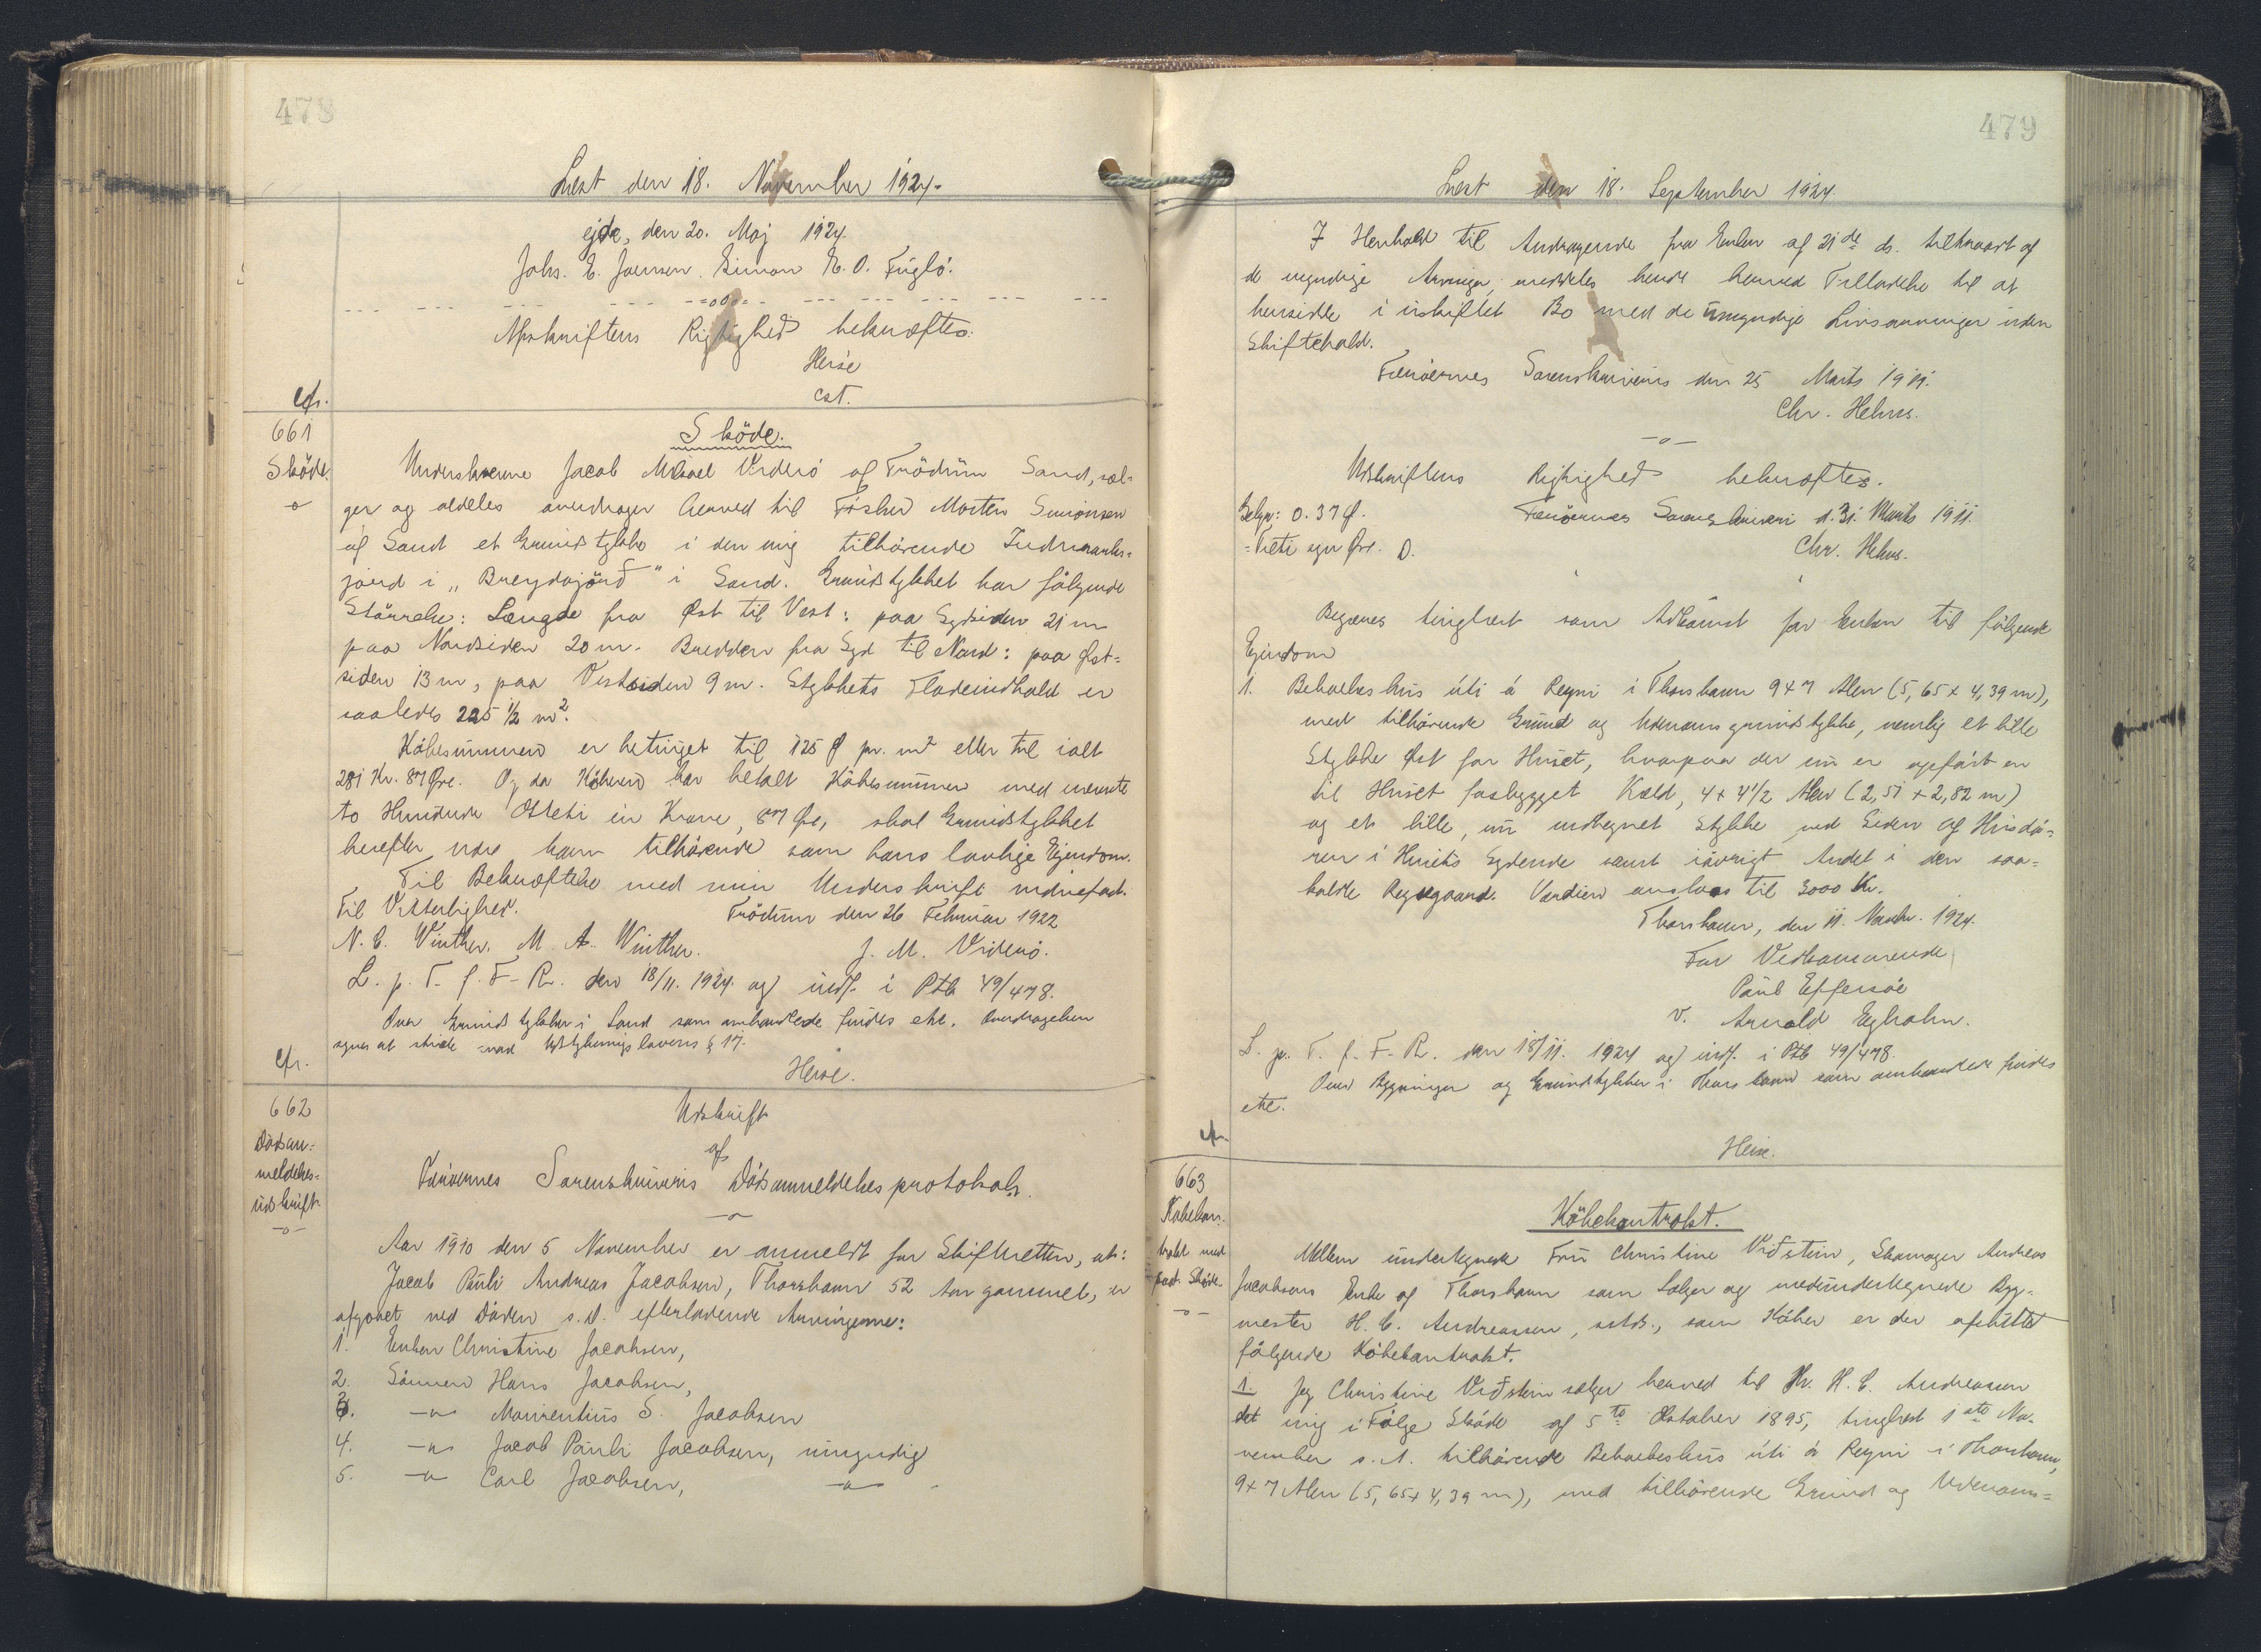 478
Læst den 18. November 1924.
ejde, den 20. Maj 1924.
Johs. E. Joensen. Simon E. O. Fuglø.
--- --- --- --=oOo=-- --- --- --- --- ---
Afskriftens Rigtighed bekræftes.
Heise
cst.
cfr.
661
Sköde.
-o-
Sköde.
Underskrevne Jacob Mikael Viderö af Tröðum Sand, sæl=
ger og aldeles overdrager herved til Fisker Morten Simonsen
af Sand et Grundstykke i den mig tilhørende Indmarks=
jord i „Breydajörð" i Sand. Grundstykket har følgende
Størrelse: Længde fra Øst til Vest: paa Sydsiden 21 m
paa Nordsiden 20 m. Bredden fra Syd til Nord: paa Øst=
siden 13 m, paa Vestsiden 9 m. Stykkets Fladeindhold er
saaledes 225 ½ m².
Købesummen er betinget til 125 Ø pr. m² eller til ialt
281 Kr. 87 Øre. Og da Køberen har betalt Købesummen med nævnte
to Hundrede Otteti en Krone, 87 Øre, skal Grundstykket
herefter være ham tilhørende som hans lovlige Ejendom.
Til Bekræftelse med min Underskrift vidnefast.
Til Vitterlighed. Tröðum den 26 Februar 1922
N. C. Winther. M. A. Winther. J. M. Viderö.
L. p. T. f. F. R. den 18/11. 1924 og indf. i Ptb 49/478.
Over Grundstykker i Sand som omhandlede findes ekc. Overdragelsen
synes at stride mod Udstykningslovens § 17.
cfr. Heise.
662
Dødsan=
meldelses=
udskrift.
-o-
Udskrift
af
Færøernes Sorenskriveris Dødsanmeldelsesprotokol.
-o-
Aar 1910 den 5 November er anmeldt for Skifteretten, at:
Jacob Pauli Andreas Jacobsen, Thorshavn 52 Aar gammel, er
afgaaet ved Døden s. D. efterladende Arvingerne:
1. Enken Christine Jacobsen,
2. Sønnen Hans Jacobsen,
3. -"- Mourentius S. Jacobsen
4. -"- Jacob Pauli Jacobsen, umyndig
5. -"- Carl Jacobsen, -"-
479
Læst den 18. September 1924.
I Henhold til Andragende fra Enken af 21de ds. tiltraadt af
de myndige Arvinger, meddeles hende herved Tilladelse til at
hensidde i uskiftet Bo med de umyndige Livsarvinger uden
Skiftehold.
Færøernes Sorenskriveri den 25 Marts 1911.
Chr. Hehus.
-o-
Udskriftens Rigtighed bekræftes.
Gebyr: 0.37 Ø. Færøernes Sorenskriveri d. 31. Marts 1911.
=Treti syv Øre. D. Chr. Hehus.
Begæres tinglæst som Adkomst for Enken til følgende
Ejendom
1. Beboelseshus úti á Reyni i Thorshavn 9 x 7 Alen (5,65 x 4,39 m),
med tilhørende Grund og Udenomsgrundstykke, nemlig et lille
Stykke Øst for Huset, hvorpaa der nu er opført en
til Huset fasbygget Kæld, 4 x 4½ Alen (2,51 x 2,82 m)
og et lille, nu indhegnet Stykke ved Siden af Husdø=
ren i Husets Sydende samt iøvrigt Andel i den saa=
kaldte Reynsgaard. Værdien anslaas til 3000 Kr.
Thorshavn, den 11. Novbr. 1924.
For Vedkommende
Pául Effersöe
v. Arnold Eyholm.
L. p. T. f. F. R. den 18/11. 1924 og indf. i Ptb 49/478.
Over Bygninger og Grundstykker i Thorshavn som omhandlede findes
ekc.
cfr. Heise.
663
Købekon=
trakt med
paat. Sköde.
-o-
Købekontrakt.
Mellem undertegnede Fru Christine Viðstein, Skomager Andreas
Jacobsens Enke af Thorshavn som Sælger og medundertegnede Byg=
mester H. C. Andreassen, sstds., som Køber er der afsluttet
følgende Købekontrakt.
1. Jeg Christine Viðstein sælger herved til Hr. H. C. Andreassen
det mig i Følge Skøde af 5te Oktober 1895, tinglæst 1ste No=
vember s. A. tilhørende Beboelseshus úti á Reyni i Thorshavn,
9 x 7 Alen (5,65 x 4,39 m), med tilhørende Grund og Udenoms=